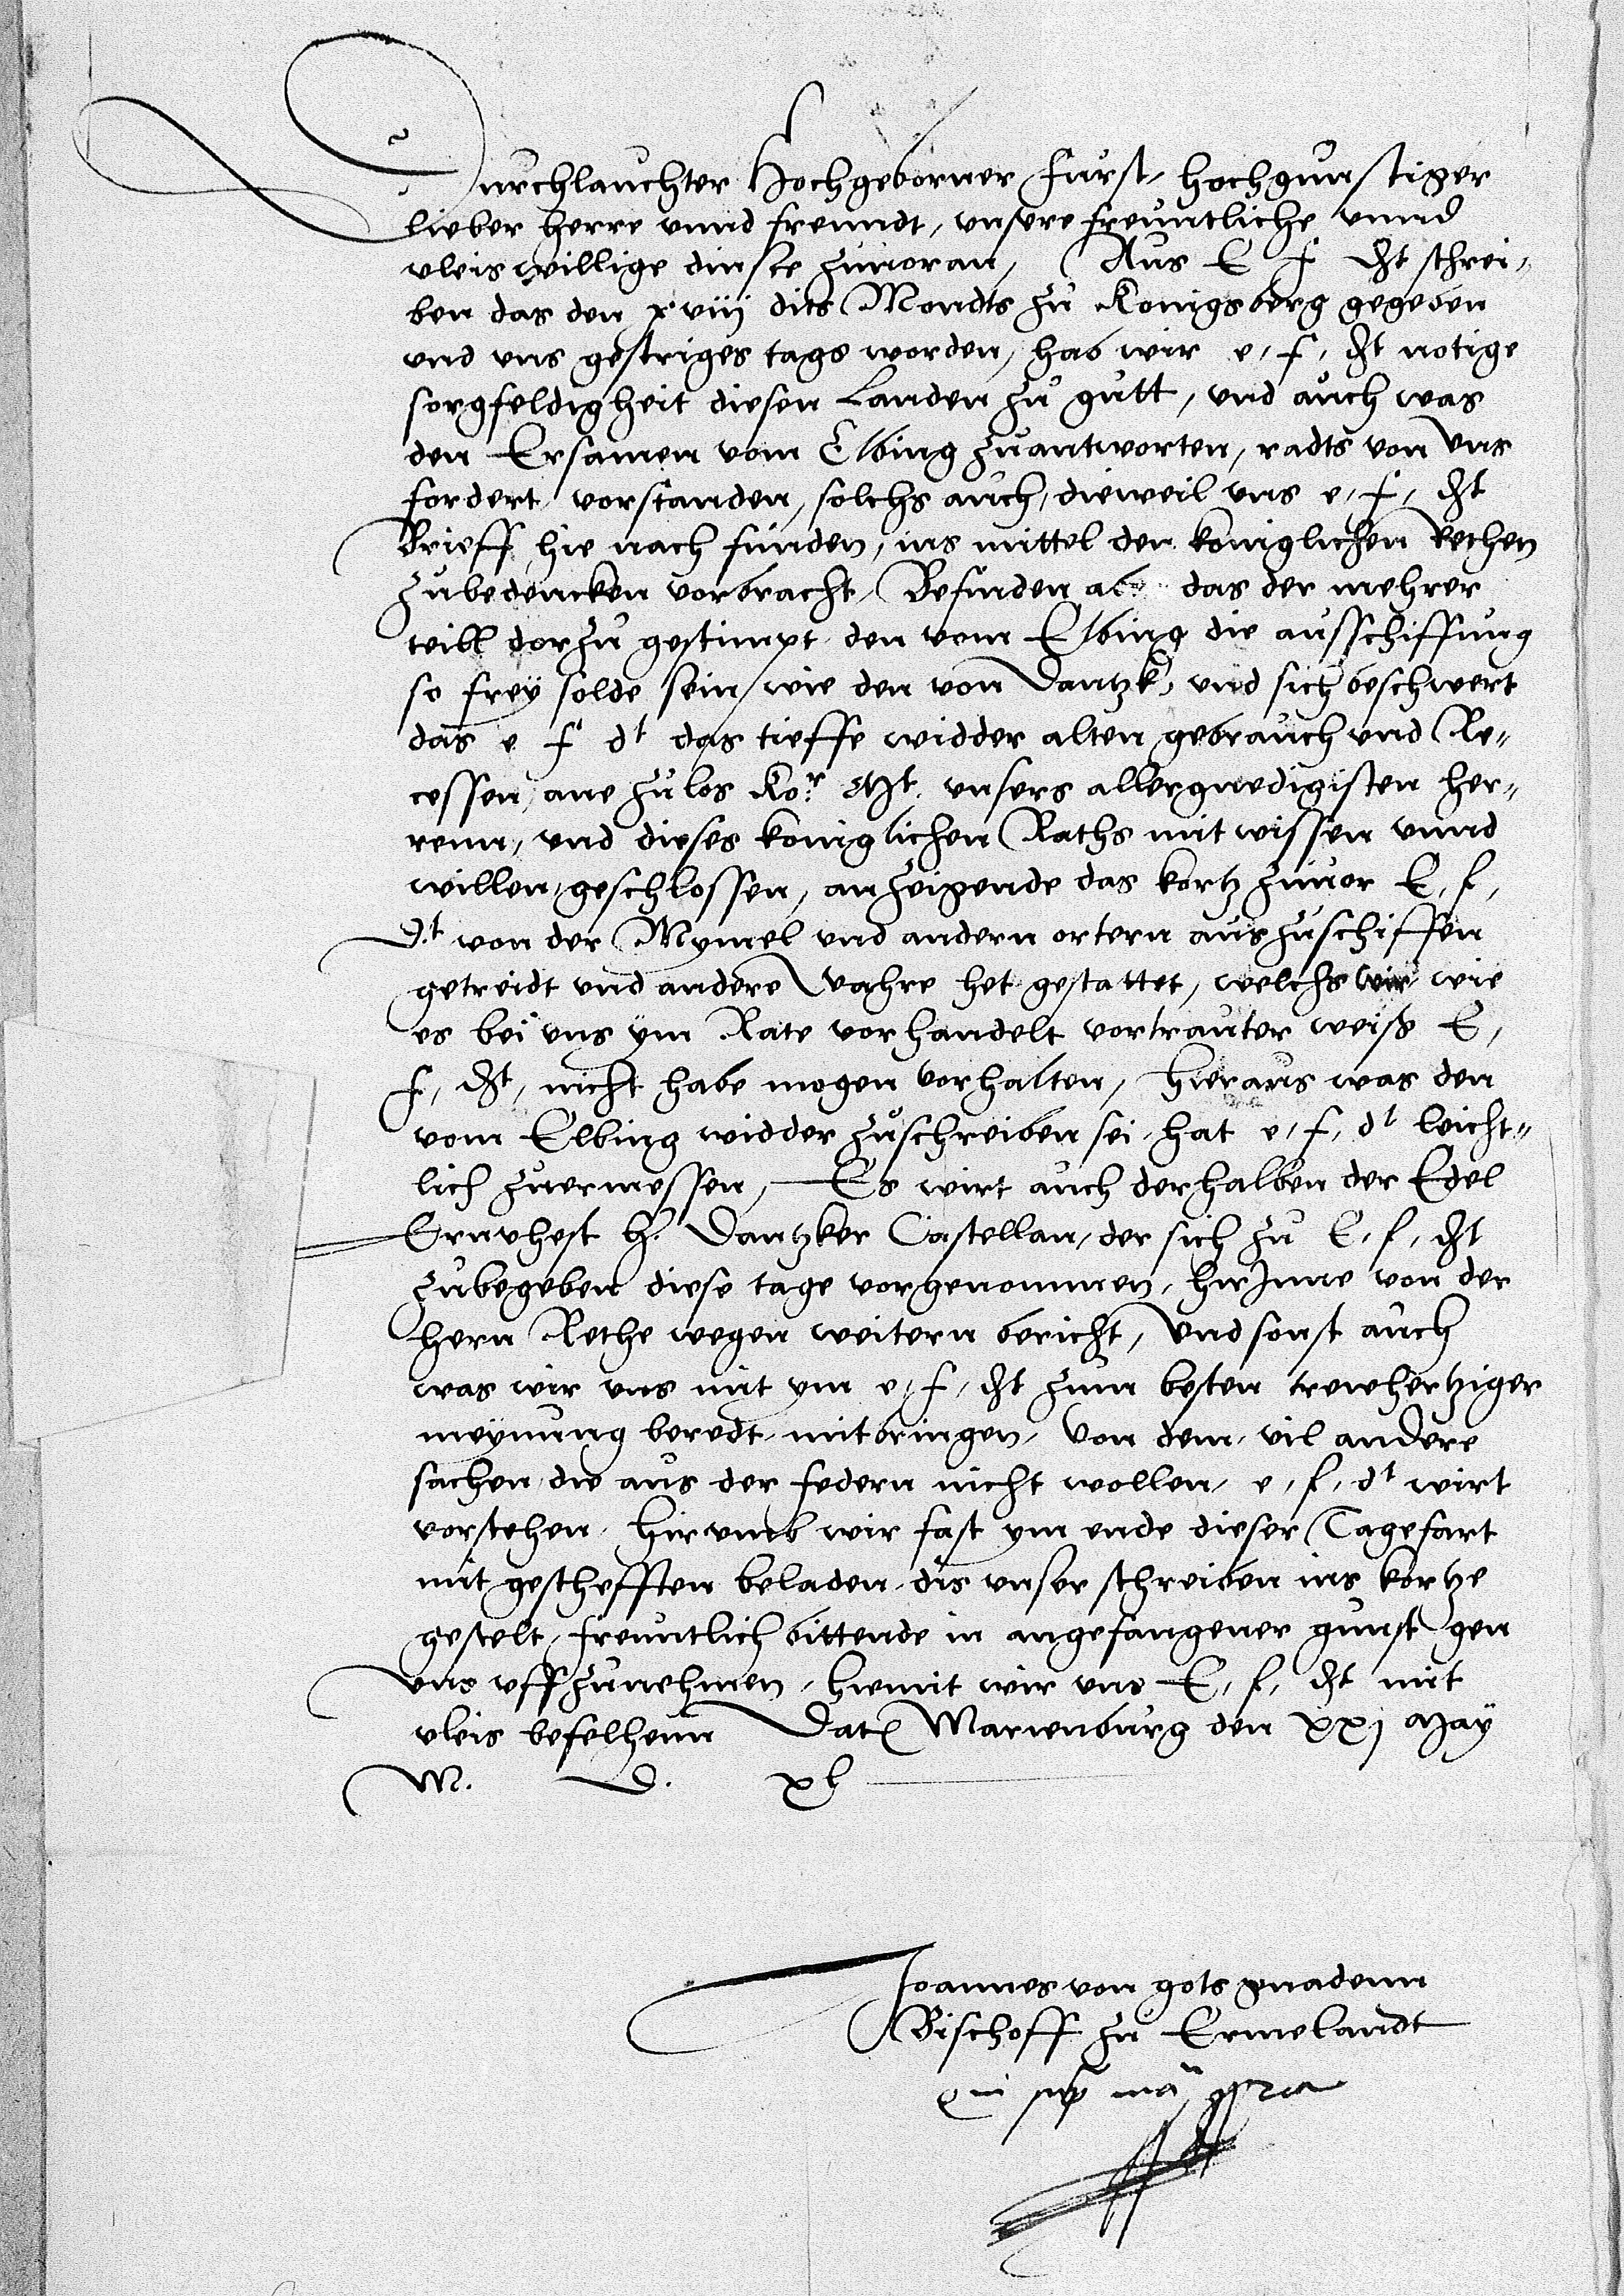 Durchlauchter Hochgeborner Furst, hochgunstiger
lieber herre unnd freundt, unsere freuntliche unnd
vleiswillige dinste zuvoran, Aus E f dt schrei„
ben das den xviij dits Mondts zu Konigsberg gegeben
und uns gestriges tags worden, hab wir e, f, dt notige
sorgfeldigheit diesen Landen zu gutt, und auch was
den Ersamen vom Elbing zuantworten, radts von uns
fordert, vorstanden, solchs auch, dieweil uns e, f, dt
Brieff hie nach funden, ins mittel der koniglichen Rethen
zubedencken vorbracht, Befinden das der mehrer
teill dorzu gestimpt den vom Elbing die ausschiffung
so frey solde sein, wie den von Dantzk, und sich beschwert
das e f dt das tieffe widder alten gebrauch und Re„
cessen, ane zulos Ko:r Mt. unsers allergnedigisten her„
renn, und dieses koniglichen Raths mitwissen unnd
willen, geschlossen, anzeigende das kortz zuvor E, f,
D.t von der Mymel und andern ortern auszuschiffen
getreidt und andere wahre het gestattet, welchs wir wie
es bei uns ym Rate vorhandelt vortrauter weiß E,
f, dt, nicht habe mogen vorhalten, Hieraus was den
vom Elbing widder zuschreiben sei, hat e, f, dt leicht„
lich zuermessen, Es wirt auch derhalben der Edel
Ernvhest h. Dantzker Castellan, der sich zu E, f, dt
zubegeben diese tage vorgenommen, hirInne von der
hern Rethe wegen weitern bericht, und sonst auch
was wir uns mit ym e, f, dt zum besten trewhertziger
meynung beredt, mitbringen, Von dem, vil andere
sachen, die aus der federn nicht wollen, e, f, dt wirt
vorstehen, Hirumb wir fast ym ende dieser Tagefart
mit geschefften beladen, dis unser schreiben ins kortze
gestelt, freuntlich bittende in angefangener gunst gen
uns uffzunehmen, hiemit wir uns E, f, dt mit
vleis befelhenn Dat Marienburg den xxj May
M. D. xl
Joannes von gots gnadenn
Bischoff zu Ermelandt